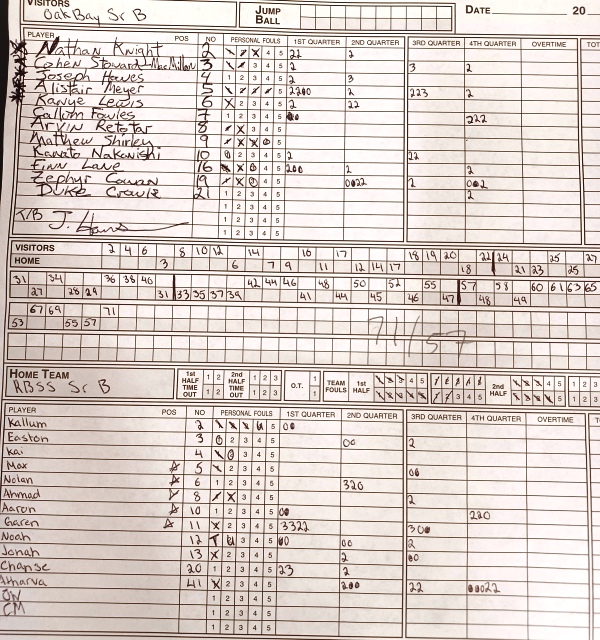 VISITORS
Oak Bay Sr B
JUMP BALL
DATE 20
PLAYER POS NO PERSONAL FOULS 1ST QUARTER 2ND QUARTER 3RD QUARTER 4TH QUARTER OVERTIME TOT
Nathan Knight 2 4 5 22 2
Cohen Steward-MacMillan 3 3 4 5 2 3 2
Joseph Hawes 4 1 2 3 4 5 2 3 2
Alistair Meyer 5 5 2200 2 223 2
Kanye Lewis 6 2 3 4 5 2 22
Callum Fowles 7 1 2 3 4 5 222
Arvin Retotar 8 3 4 5
Matthew Shirley 9 5
Kanato Nakanishi 10 2 3 4 5 2 22
Finn Lane 16 4 5 200 2 2
Zephyr Cowan 19 4 5 0022 2 002
Duke Crowle 21 1 2 3 4 5 2
1 2 3 4 5
T/B J. 1 2 3 4 5
VISITORS 2 4 6 8 10 12 14 16 17 18 19 20 22 24 25 27
HOME 3 6 7 9 11 12 14 17 18 21 23 25
31 34 36 38 40 42 44 46 48 50 52 55 57 58 60 61 63 65
27 28 29 31 33 35 37 39 41 44 45 46 47 48 49
67 69 71
53 55 57
71/57
HOME TEAM
RBSS Sr B
1st HALF TIME OUT 1 2 1 2
2nd HALF TIME OUT 1 2 3 1 2 3
O.T. 1 1
TEAM FOULS 1st HALF 2nd HALF
PLAYER POS NO PERSONAL FOULS 1ST QUARTER 2ND QUARTER 3RD QUARTER 4TH QUARTER OVERTIME
Kallum 2 5 00
Easton 3 2 3 4 5 00 2
Kai 4 3 4 5
Max 5 2 3 4 5 00
Nolan 6 1 2 3 4 5 320
Ahmad 8 3 4 5 2
Aaron 10 1 2 3 4 5 00 220
Garen 11 2 3 4 5 3322 300
Noah 12 T U 3 4 5 00 00 2
Jonah 13 2 3 4 5 2 00
Chanse 20 1 2 3 4 5 23 2
Atharva 41 2 3 4 5 200 22 00022
1 2 3 4 5
CM 1 2 3 4 5
1 2 3 4 5